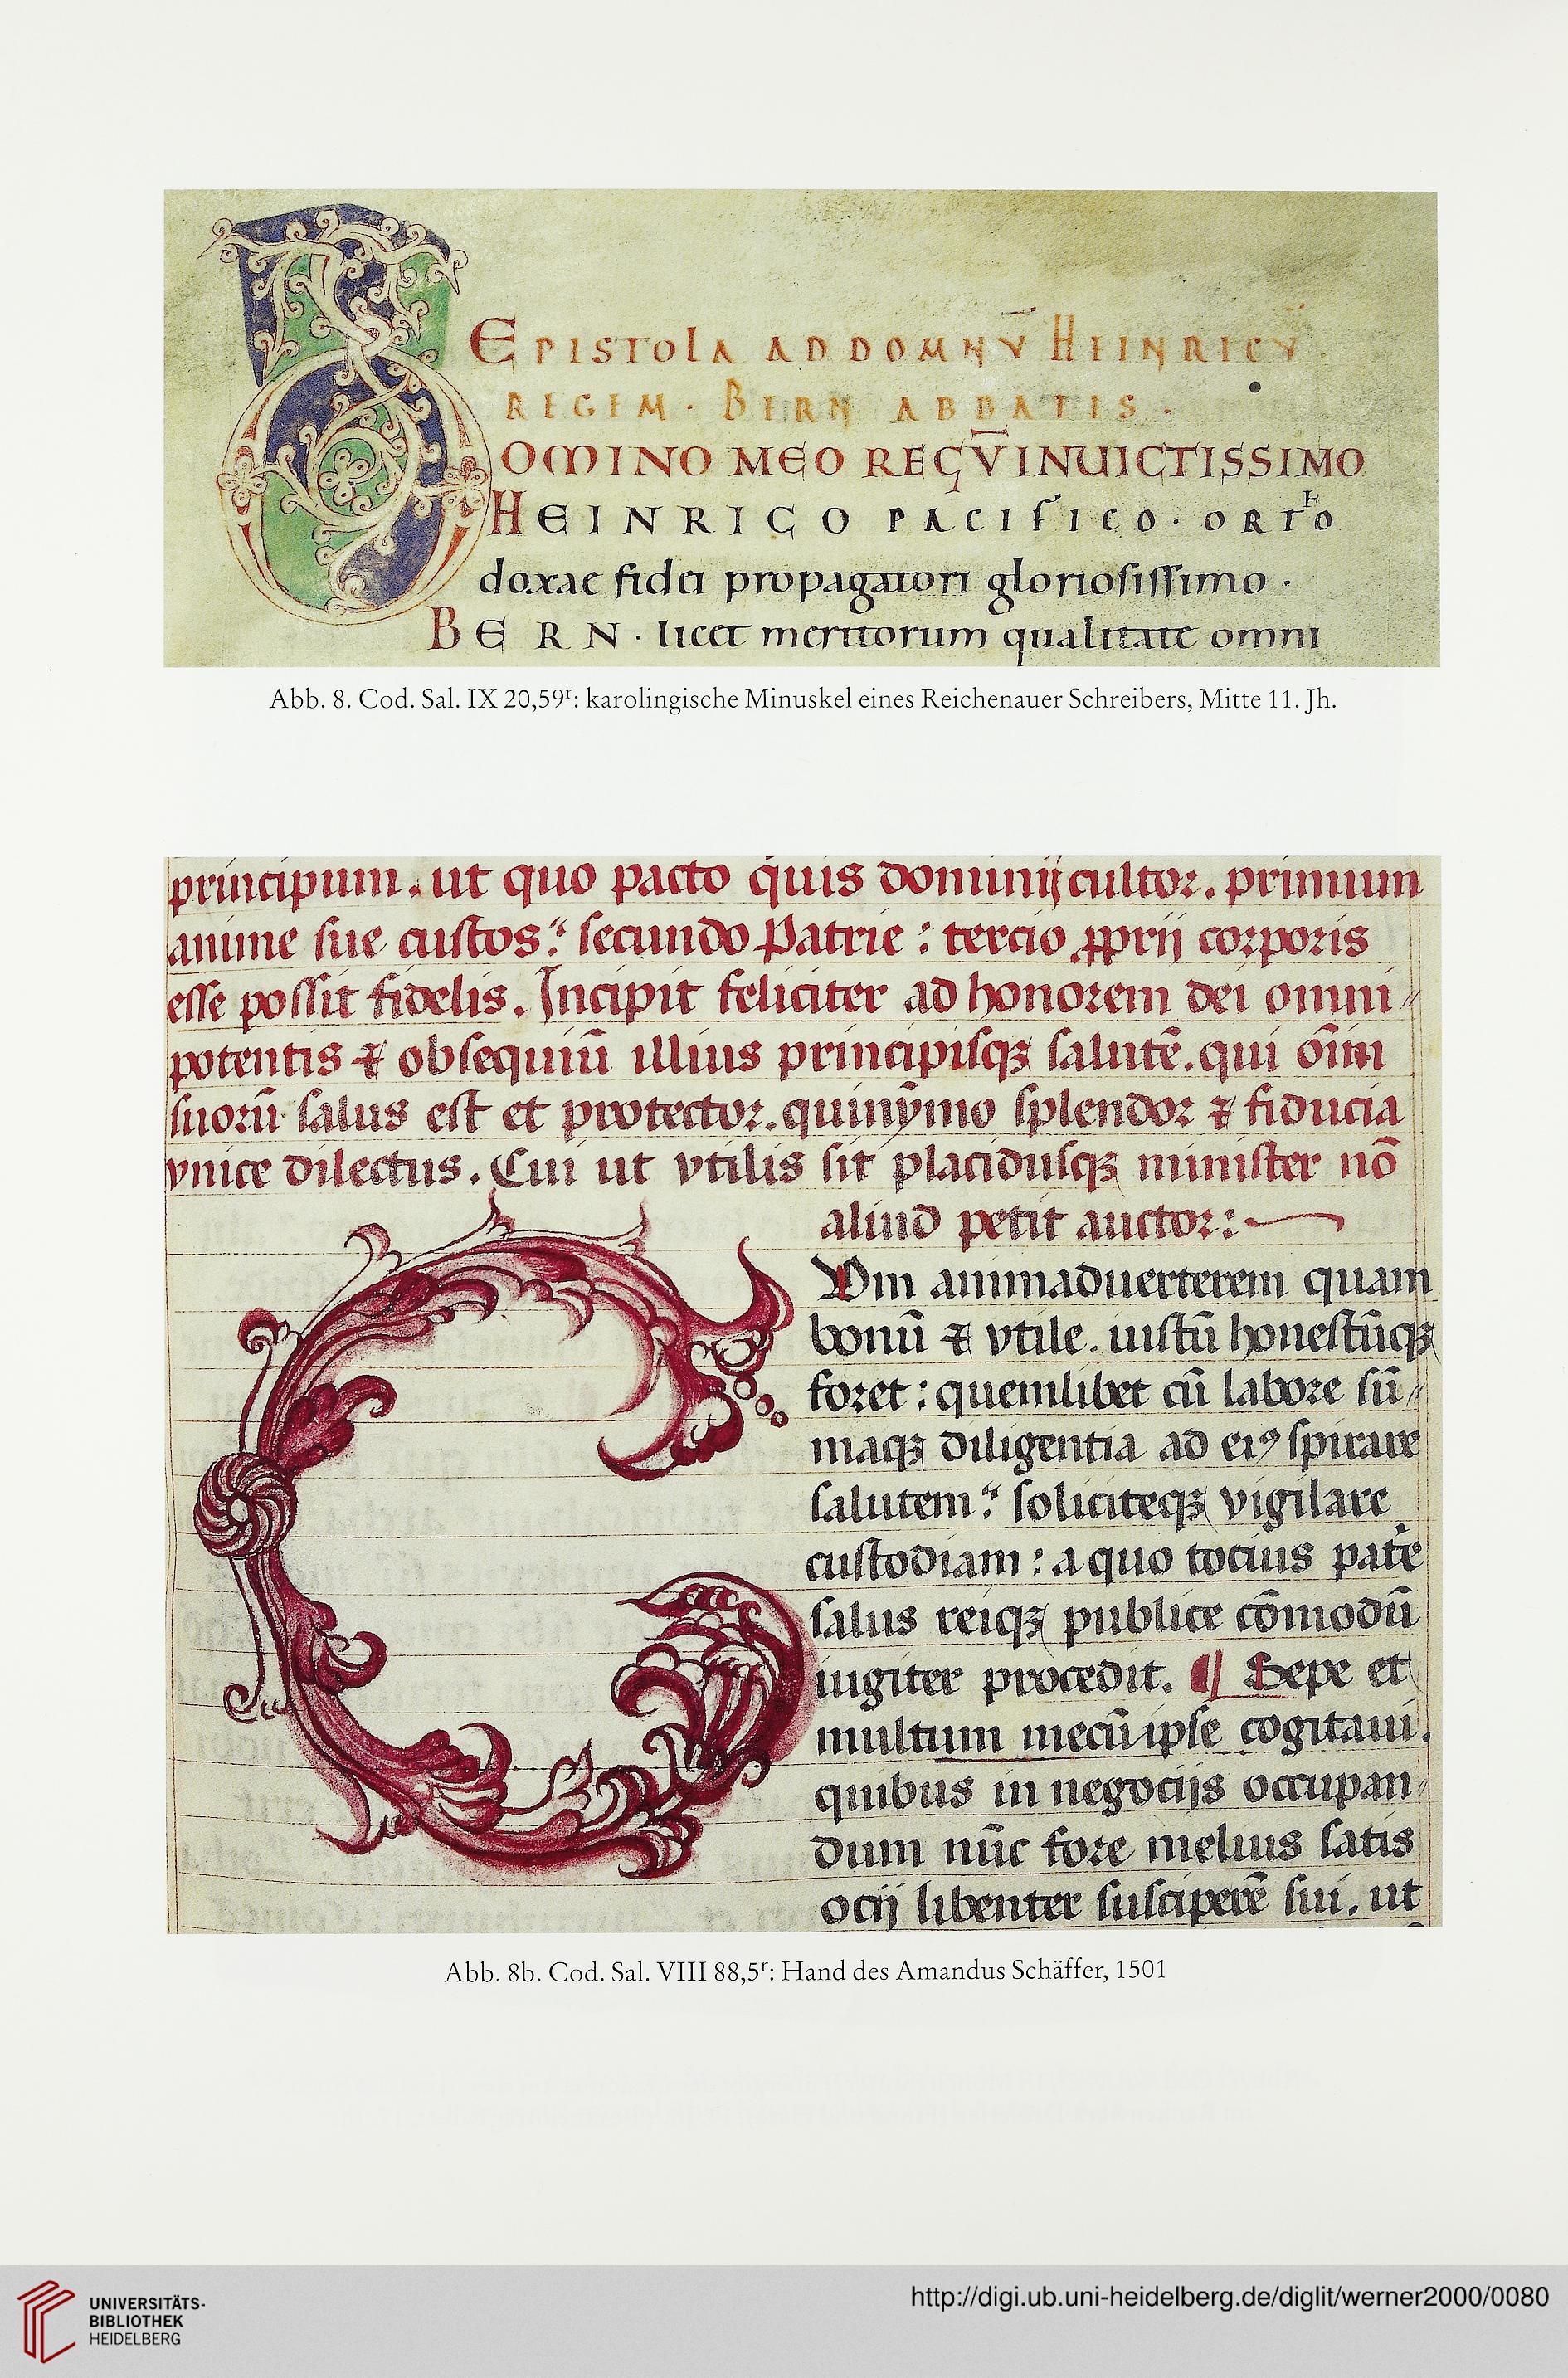 EPISTOLA AD DOMNV̄ HEINRICV̄
REGEM · BERN ABBATIS ·
OMINO MEO REGV̄ INUICTISSIMO
HEINRICO PACIFICO · ORTHO
doxae fidei propagatori gloriosissimo ·
BERN · licet meritorum qualitate omni
Abb. 8. Cod. Sal. IX 20,59ʳ: karolingische Minuskel eines Reichenauer Schreibers, Mitte 11. Jh.
principum. ut quo pacto quis dominij cultor. primum
anime sue custos: secundo Patrie: tercio ꝓprij corporis
esse possit fidelis. Incipit feliciter ad honorem dei omni⸗
potentis ⁊ obsequiū illius principisqꝫ salutē. qui oīm
suorū salus est et protector. quinȳmo splendor ⁊ fiducia
vnice dilectus. Cui ut vtilis sit placidusqꝫ minister nō
aliud petit auctor:
Vm animaduerterem quam
bonū ⁊ vtile. iustū honestūqꝫ
foret: quemlibet cū labore sū⸗
maqꝫ diligentia ad eiꝰ spirare
salutem: soliciteqꝫ vigilare
custodiam: a quo tocius patrie
salus reiqꝫ publice cōmodū
iugiter procedit. ¶ Sepe et
multum mecū ipse cogitaui.
quibus in negocijs occupan⸗
dum nūc fore melius satis
ocij libenter susciperē sui. ut
Abb. 8b. Cod. Sal. VIII 88,5ʳ: Hand des Amandus Schäffer, 1501
UNIVERSITÄTS-
BIBLIOTHEK
HEIDELBERG
http://digi.ub.uni-heidelberg.de/diglit/werner2000/0080